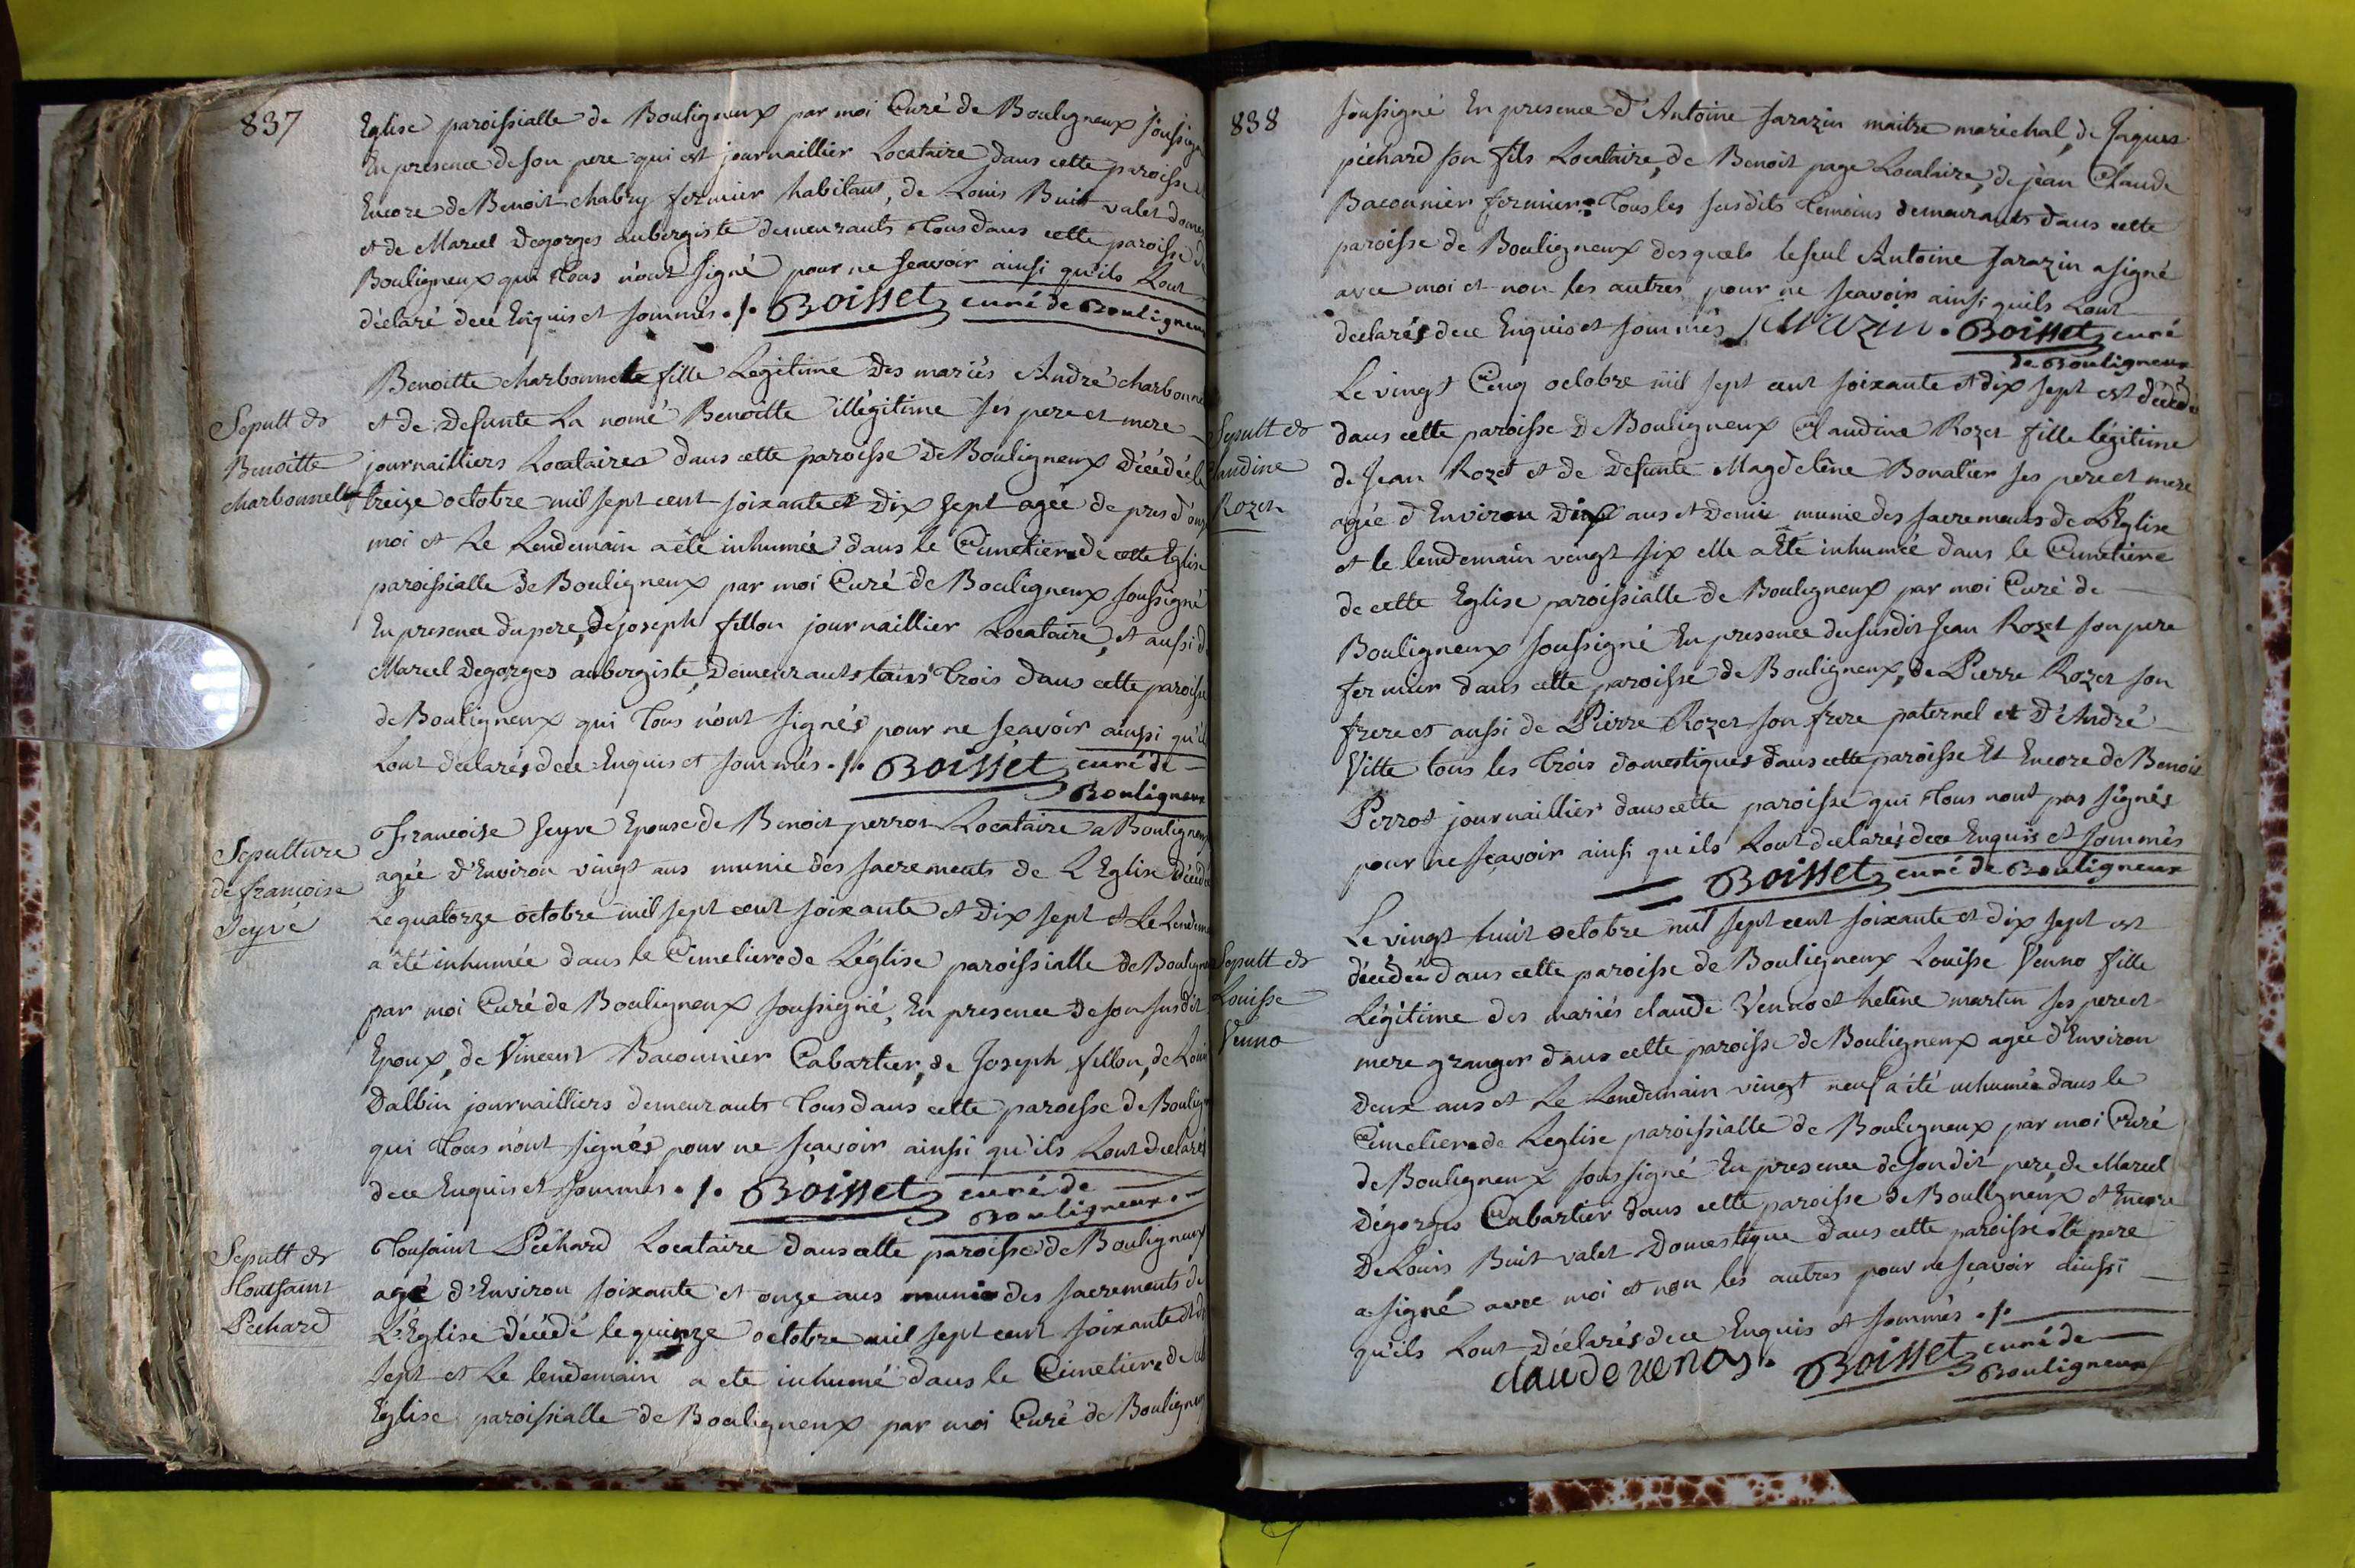 837
Eglise paroissialle de Bouligneux par moi Curé de Bouligneux soussigné
En presence de son pere qui est journaillier Locataire dans cette paroisse et
Encore de Benoit chabry fermier habitant, de Louis Buit valet domes
et de Marcel Degorges aubergiste demeurants tous dans cette paroisse de
Bouligneux qui tous n'ont signé pour ne sçavoir ainsi qu'ils Lont
déclaré dece Enquis et sommés ./. Boisset curé de Bouligneux
Sepult de
Benoitte
charbonnette
Benoitte charbonnette fille Legitime Des mariés André charbonne
et de Defunte La nomé Benoitte illégitime ses pere et mere
journailliers Locataires dans cette paroisse De Bouligneux Décédée le
treize octobre mil sept cent soixante et Dix sept agée de pres d'onz
moi et Le Lendemain a été inhumée dans le Cimetiere de cette Eglise
paroissialle de Bouligneux par moi Curé de Bouligneux soussigné
En presence du pere, de joseph fillon journaillier Locataire, et aussi de
Marcel Degorges aubergiste, Demeurants tous trois dans cette paroisse
de Bouligneux qui tous n'ont signés pour ne sçavoir ainsi qu'il
Lont declarés dece Enquis et sommés ./. Boisset curé de
Bouligneux
Sepulture
de françoise
Seyve
Francoise Seyve Epouse de Benoit perrot Locataire a Bouligneux
agée d'Environ vingt ans munie des sacrements de L'Eglise décédé
Le quatorze octobre mil sept cent soixante et Dix sept et Le Lendema
a été inhumée dans le Cimetiere de L'église paroissialle de Bouligneux
par moi Curé de Bouligneux soussigné, En presence de son susdit
Epoux, de Vincent Baconnier Cabartier, de Joseph fillon, de Louis
Dalbin journailliers demeurants tous dans cette paroisse de Boulign
qui tous n'ont signés pour ne sçavoir ainsi qu'ils Lont declarés
dece Enquis et sommés ./. Boisset curé de
Bouligneux
Sepult de
toussaint
Pechard
Tousaint Péchard Locataire dans cette paroisse de Bouligneux
agé d'Environ soixante et onze ans munie des sacrements de
L'Eglise décédé le quinze octobre mil sept cent soixante et di
sept et Le lendemain a ete inhumé dans le Cimetiere de
Eglise paroissialle de Bouligneux par moi Curé de Bouligneux
838
soussigné En presence d'Antoine Sarazin maitre maréchal, de Jaques
péchard son fils Locataire, de Benoit page Locataire, de jean Claude
Baconnier fermier: tous les susdits temoins demeurants dans cette
paroisse de Bouligneux desquels le seul Antoine Sarazin a signé
avec moi et non les autres pour ne sçavoir ainsi quils Lont
declarés dece Enquis et sommés Boisset curé
de Bouligneux
Sepult de
Claudine
Rozet
Le vingt Cinq octobre mil sept cent soixante et dix sept est décédée
dans cette paroisse De Bouligneux Claudine Rozet fille légitime
de Jean Rozet et de Defunte Magdelêne Bonatier ses pere et mere
agée d'Environ Dix ans et Demie munie des sacrements de L'Eglise
et le lendemain vingt six elle a Eté inhumée dans le Cimetiere
de cette Eglise paroissialle de Bouligneux par moi Curé de
Bouligneux soussigné En presence du susdit Jean Rozet son pere
fermier dans cette paroisse de Bouligneux, de Pierre Rozet son
frere et aussi de Pierre Rozet son frere paternel et D'André
Vitte tous les trois domestiques dans cette paroisse Et Encore de Benoit
Perrot journaillier dans cette paroisse qui tous nont pas signés
pour ne sçavoir ainsi qu'ils Lont declarés dece Enquis et sommés
Boisset curé de Bouligneux
Sepult de
Louisse
Venno
Le vingt huit octobre mil sept cent soixante et dix sept est
décédée dans cette paroisse de Bouligneux Louisse Venno fille
Légitime des mariés claude Venno et heléne martin ses pere et
mere granger dans cette paroisse de Bouligneux agée d'Environ
Deux ans et Le Lendemain vingt neuf a été inhumée dans le
Cimetiere de L'eglise paroissialle de Bouligneux par moi Curé
de Bouligneux soussigné En presence de son dit pere, de Marcel
Dégorges Cabartier dans cette paroisse de Bouligneux et Encore
De Louis Buit valet Domestique dans cette paroisse le pere
a signé avec moi et non les autres pour ne sçavoir ainsi
qu'ils Lont Déclarés dece Enquis et sommés ./.
claude venos. Boisset curé de
Bouligneux